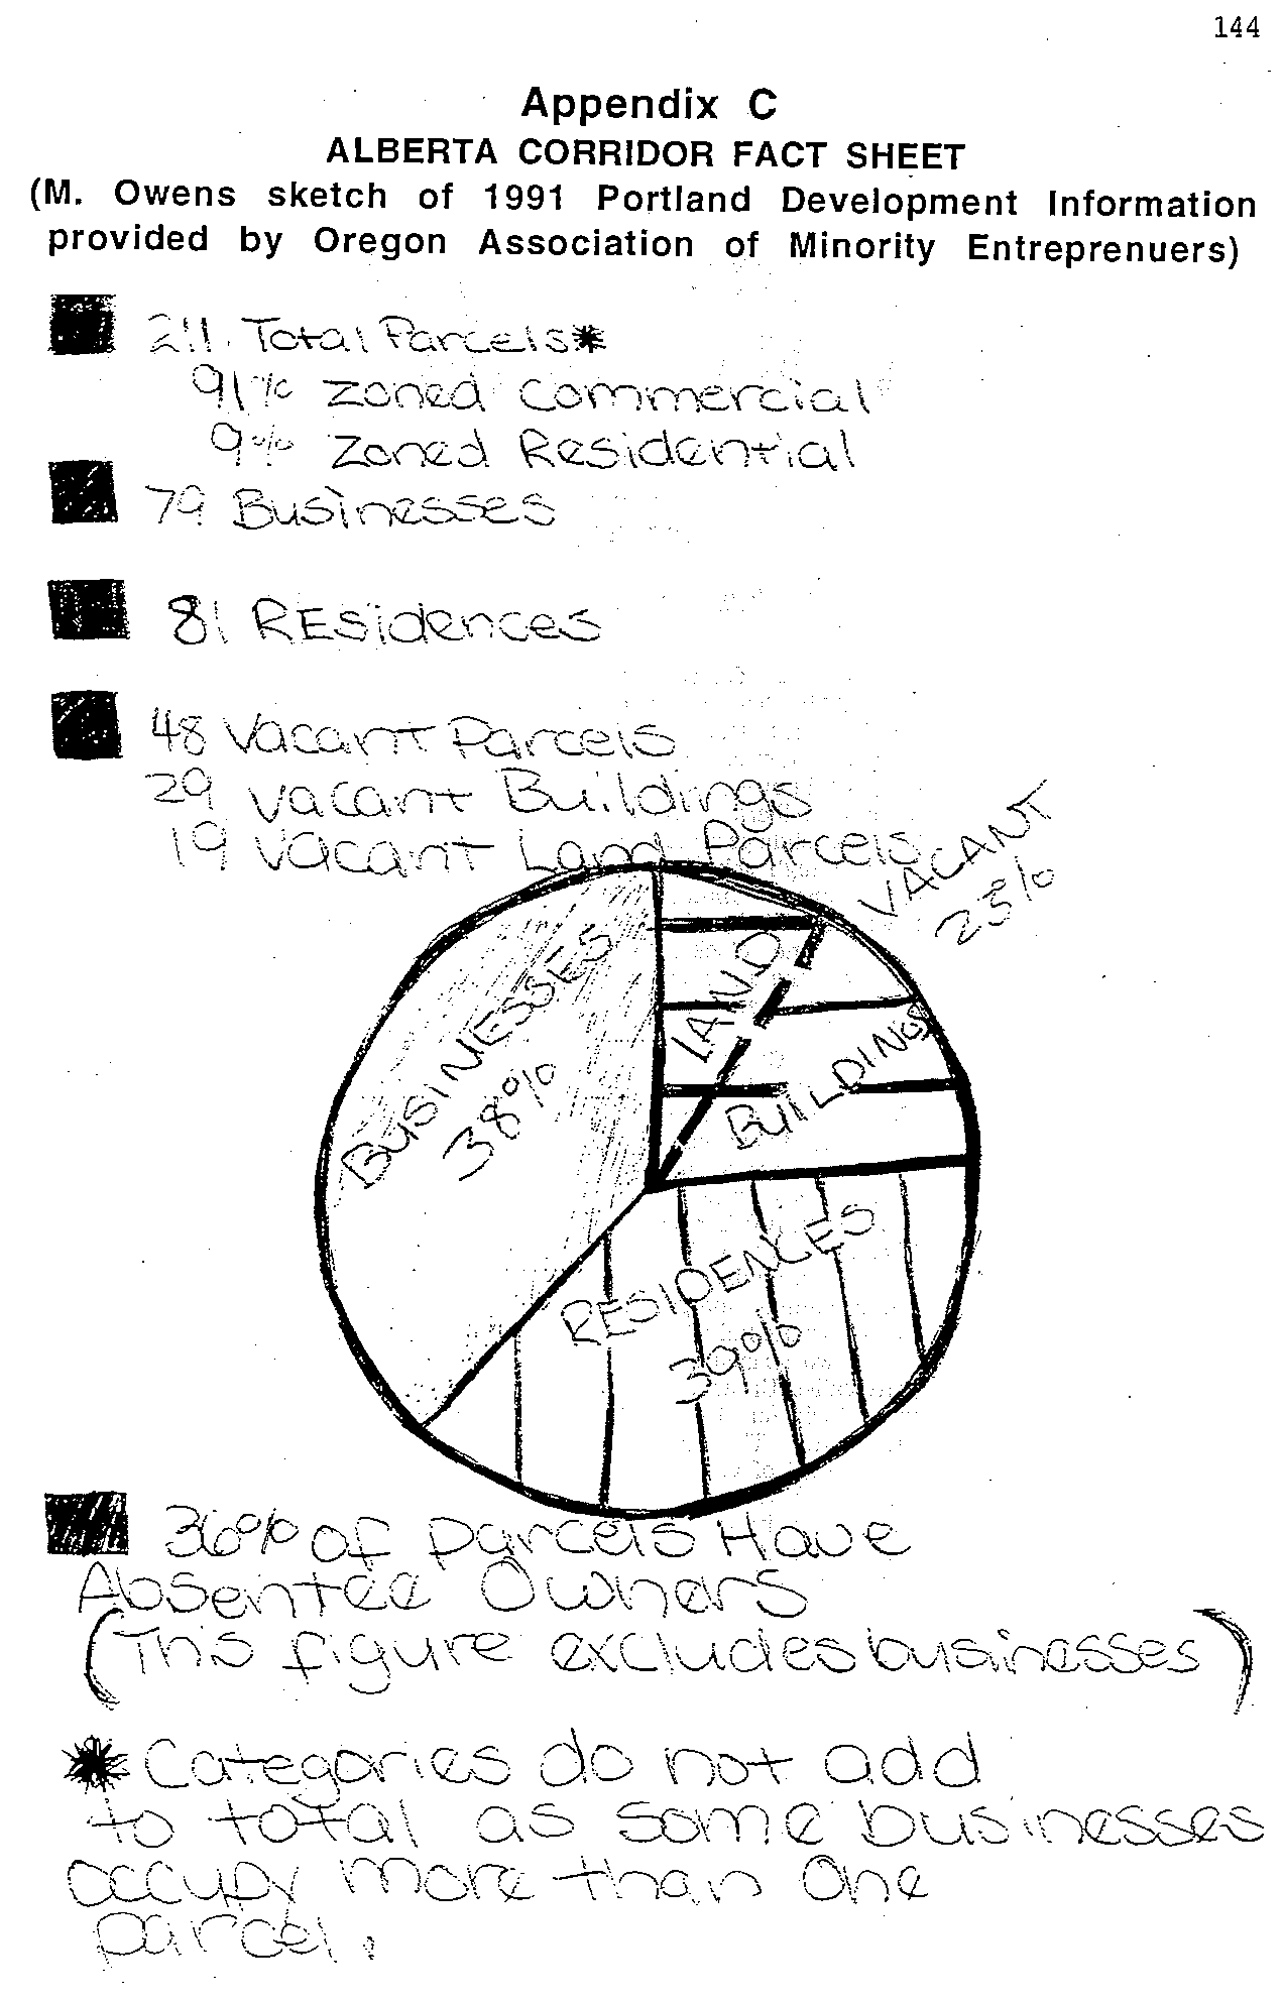 144
Appendix C
ALBERTA CORRIDOR FACT SHEET
(M. Owens sketch of 1991 Portland Development Information
provided by Oregon Association of Minority Entreprenuers)
211 Total Parcels*
91% zoned commercial
9% zoned Residential
79 Businesses
81 REsidences
48 Vacant Parcels
29 vacant Buildings
19 Vacant Land Parcels
VACANT
23%
LAND
BUILDINGS
BUSINESSES
38%
RESIDENCES
39%
36% of parcels Have
Absentee Owners
(This figure excludes businesses)
* Categories do not add
to total as some businesses
occupy more than One
parcel.